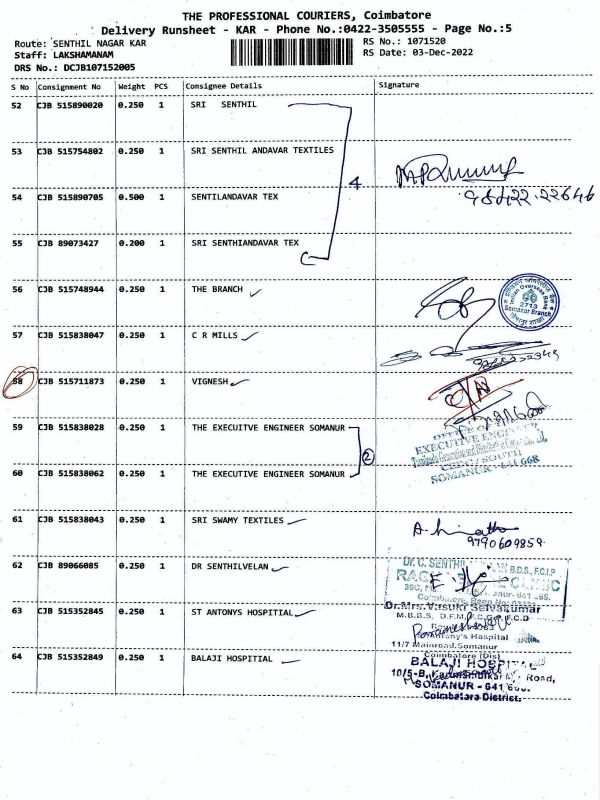 THE PROFESSIONAL COURIERS, Coimbatore
Delivery Runsheet - KAR - Phone No.:0422-3505555 - Page No.:5
Route: SENTHIL NAGAR KAR RS No.: 1071520
Staff: LAKSHAMANAM RS Date: 03-Dec-2022
DRS No.: DCJB107152005
S No Consignment No Weight PCS Consignee Details Signature
52 CJB 515890020 0.250 1 SRI SENTHIL
53 CJB 515754802 0.250 1 SRI SENTHIL ANDAVAR TEXTILES
4
54 CJB 515890705 0.500 1 SENTILANDAVAR TEX
55 CJB 89073427 0.200 1 SRI SENTHIANDAVAR TEX
56 CJB 515748944 0.250 1 THE BRANCH
Indian Overseas Bank
2713
Somanur Branch
57 CJB 515838047 0.250 1 C R MILLS
58 CJB 515711873 0.250 1 VIGNESH
59 CJB 515838028 0.250 1 THE EXECUITVE ENGINEER SOMANUR
OFFICE OF THE
EXECUTIVE ENGINEER
2
CEDC / SOUTH
SOMANUR - 641 668
60 CJB 515838062 0.250 1 THE EXECUTIVE ENGINEER SOMANUR
61 CJB 515838043 0.250 1 SRI SWAMY TEXTILES
9790609859
62 CJB 89066085 0.250 1 DR SENTHILVELAN
Dr. C. SENTHIL B.D.S., F.C.I.P
CLINIC
63 CJB 515352845 0.250 1 ST ANTONYS HOSPITIAL
Dr.Mrs.Vasuki Selvakumar
M.B.B.S, D.F.M,
Hospital
11/7 Mainroad, Somanur
Coimbatore (Dis)
64 CJB 515352849 0.250 1 BALAJI HOSPITIAL
BALAJI HOSPITAL
10/5-B, Road,
SOMANUR - 641
Coimbatore District.